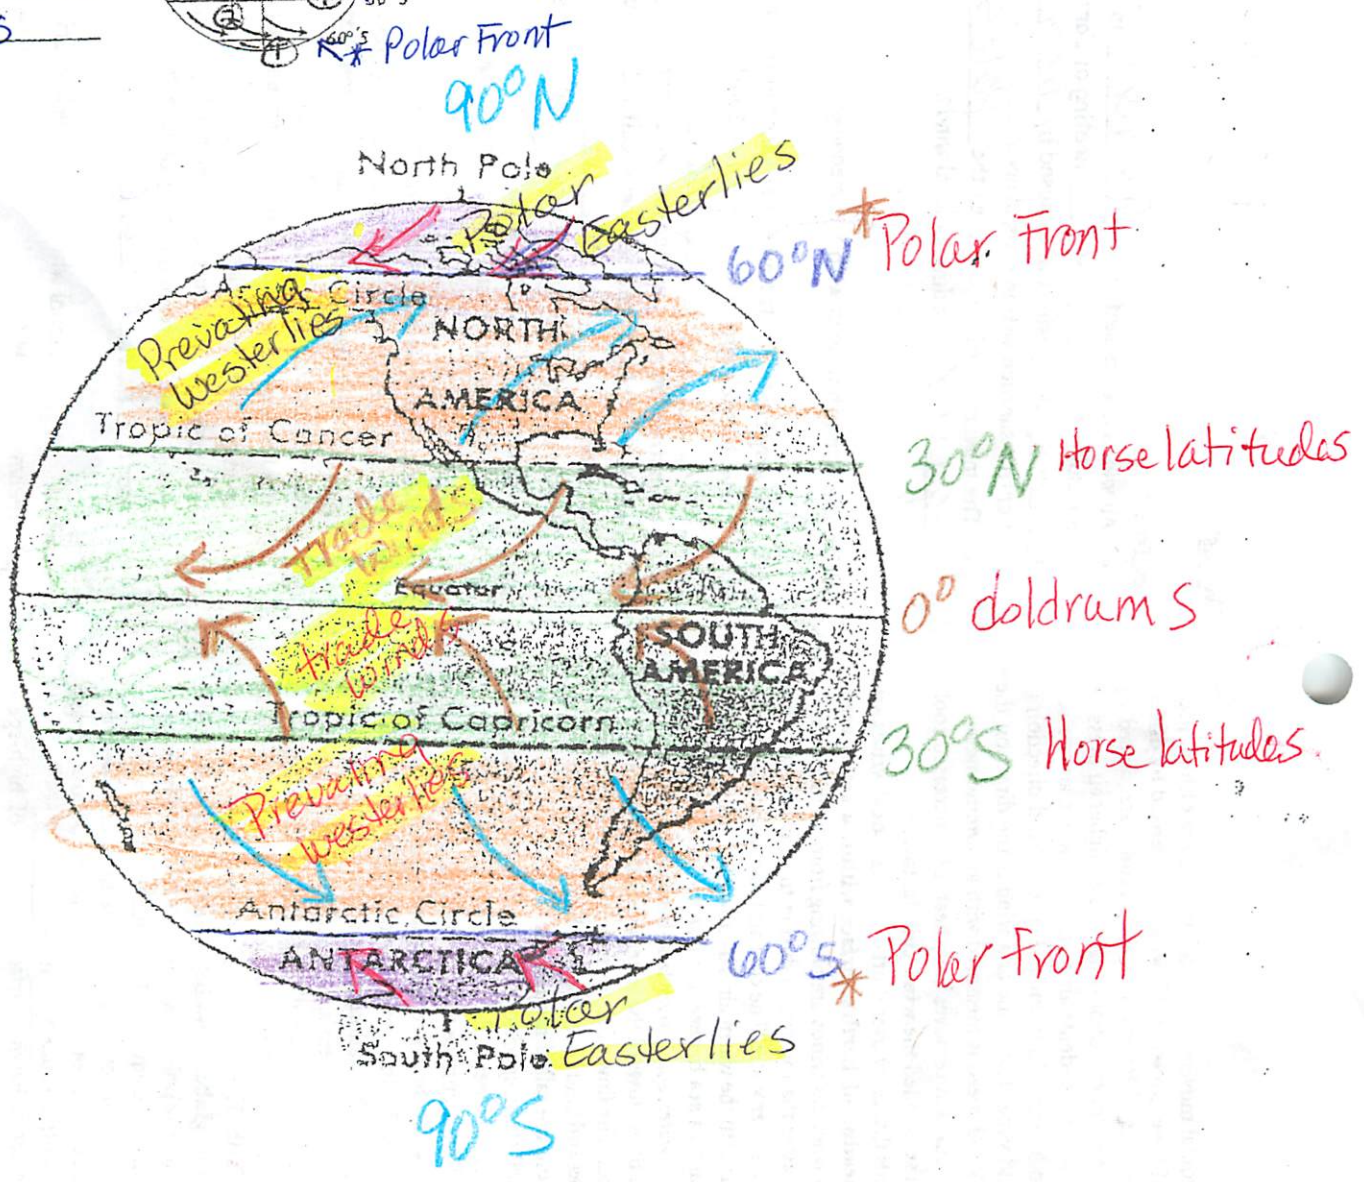 S
②
60°S
①
* Polar Front
90°N
North Pole
Polar Easterlies
60°N * Polar Front
Circle
Prevating
westerlies
NORTH
AMERICA
Tropic of Cancer
30°N Horse latitudes
trade
wind
Equator
0° doldrums
trade
winds
SOUTH
AMERICA
Tropic of Capricorn
30°S Horse latitudes.
Prevating
westerlies
Antarctic Circle
60°S * Polar Front
ANTARCTICA
Polar
South Pole Easterlies
90°S